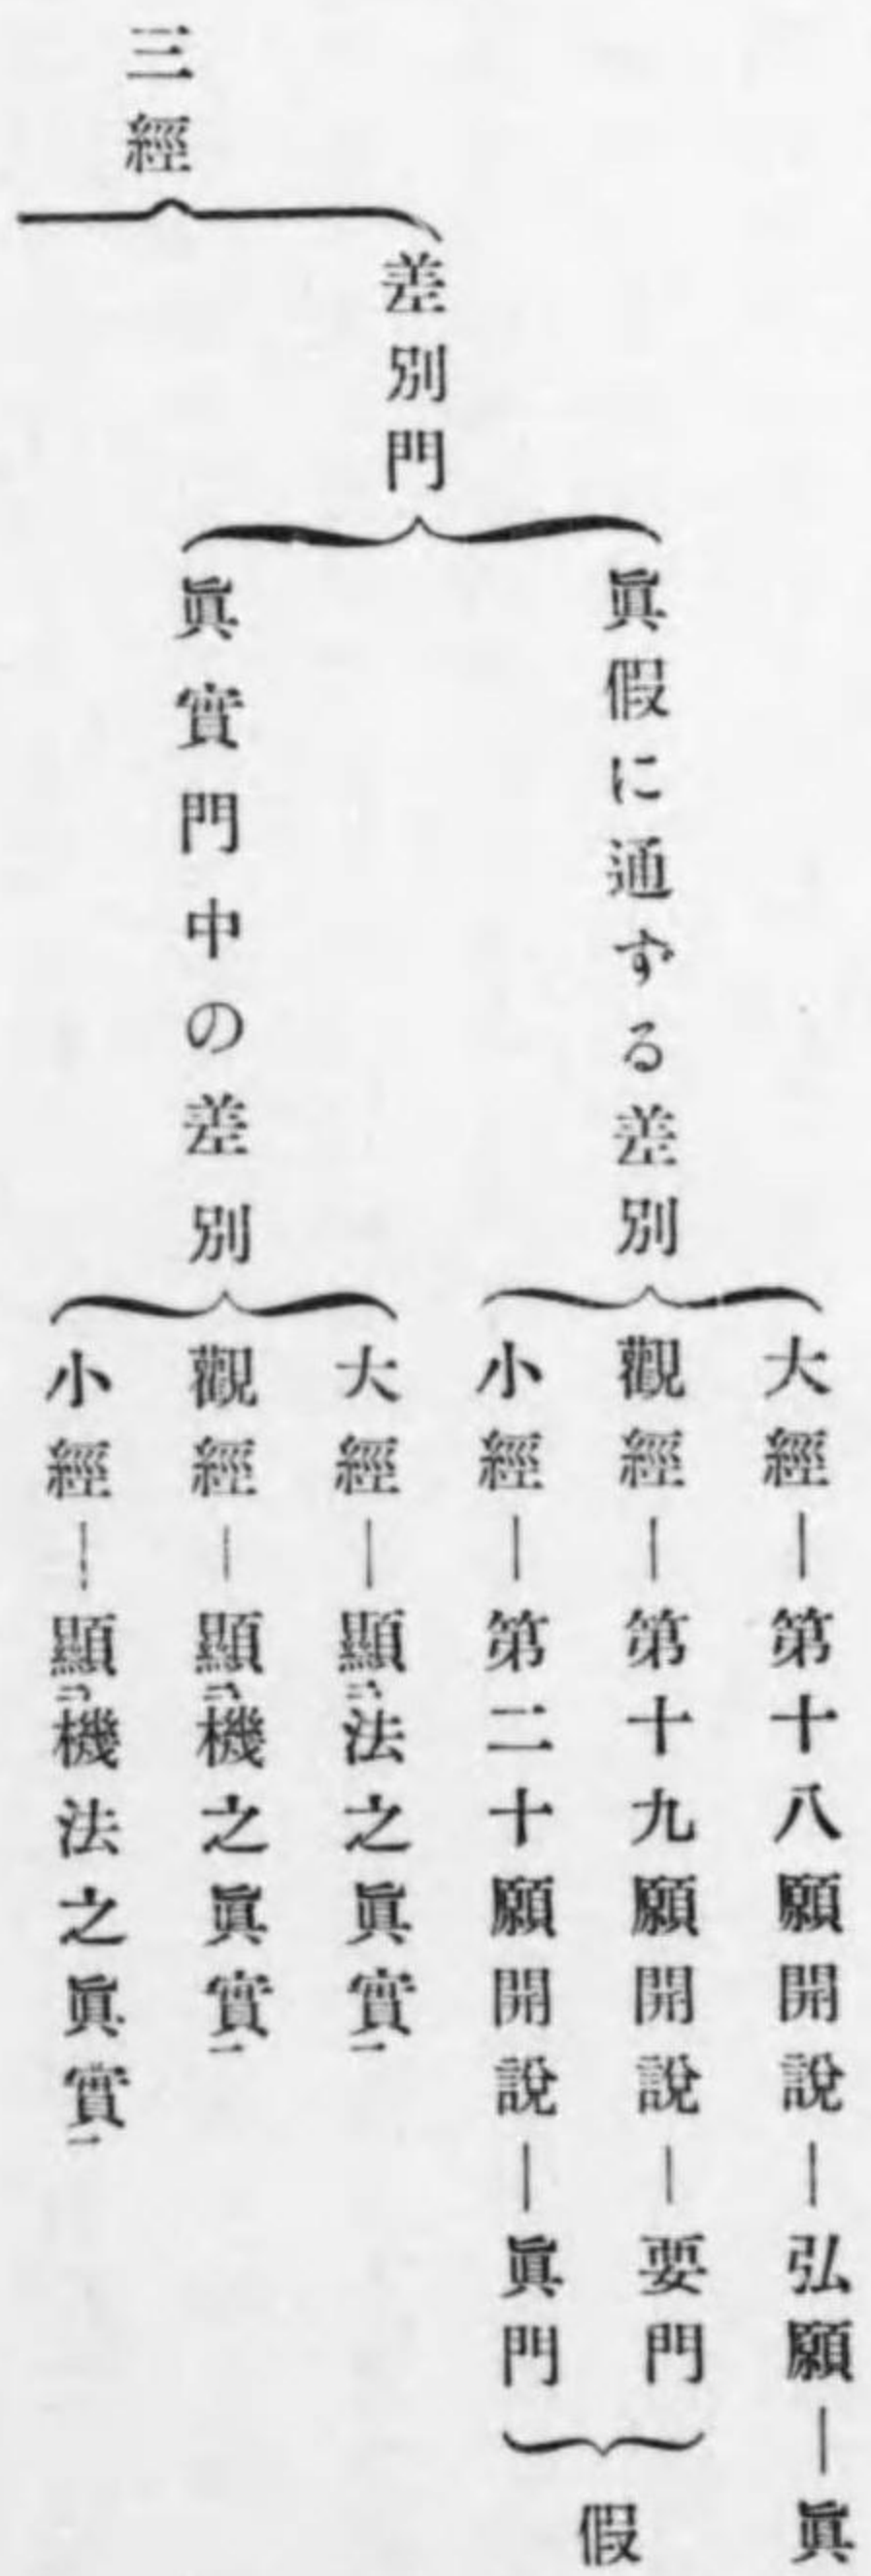 三經
差別門
眞假に通ずる差別
大經―第十八願開說―弘願―眞
觀經―第十九願開說―要門
小經―第二十願開說―眞門
假
眞實門中の差別
大經―顯法之眞實
觀經―顯機之眞實
小經―顯機法之眞實